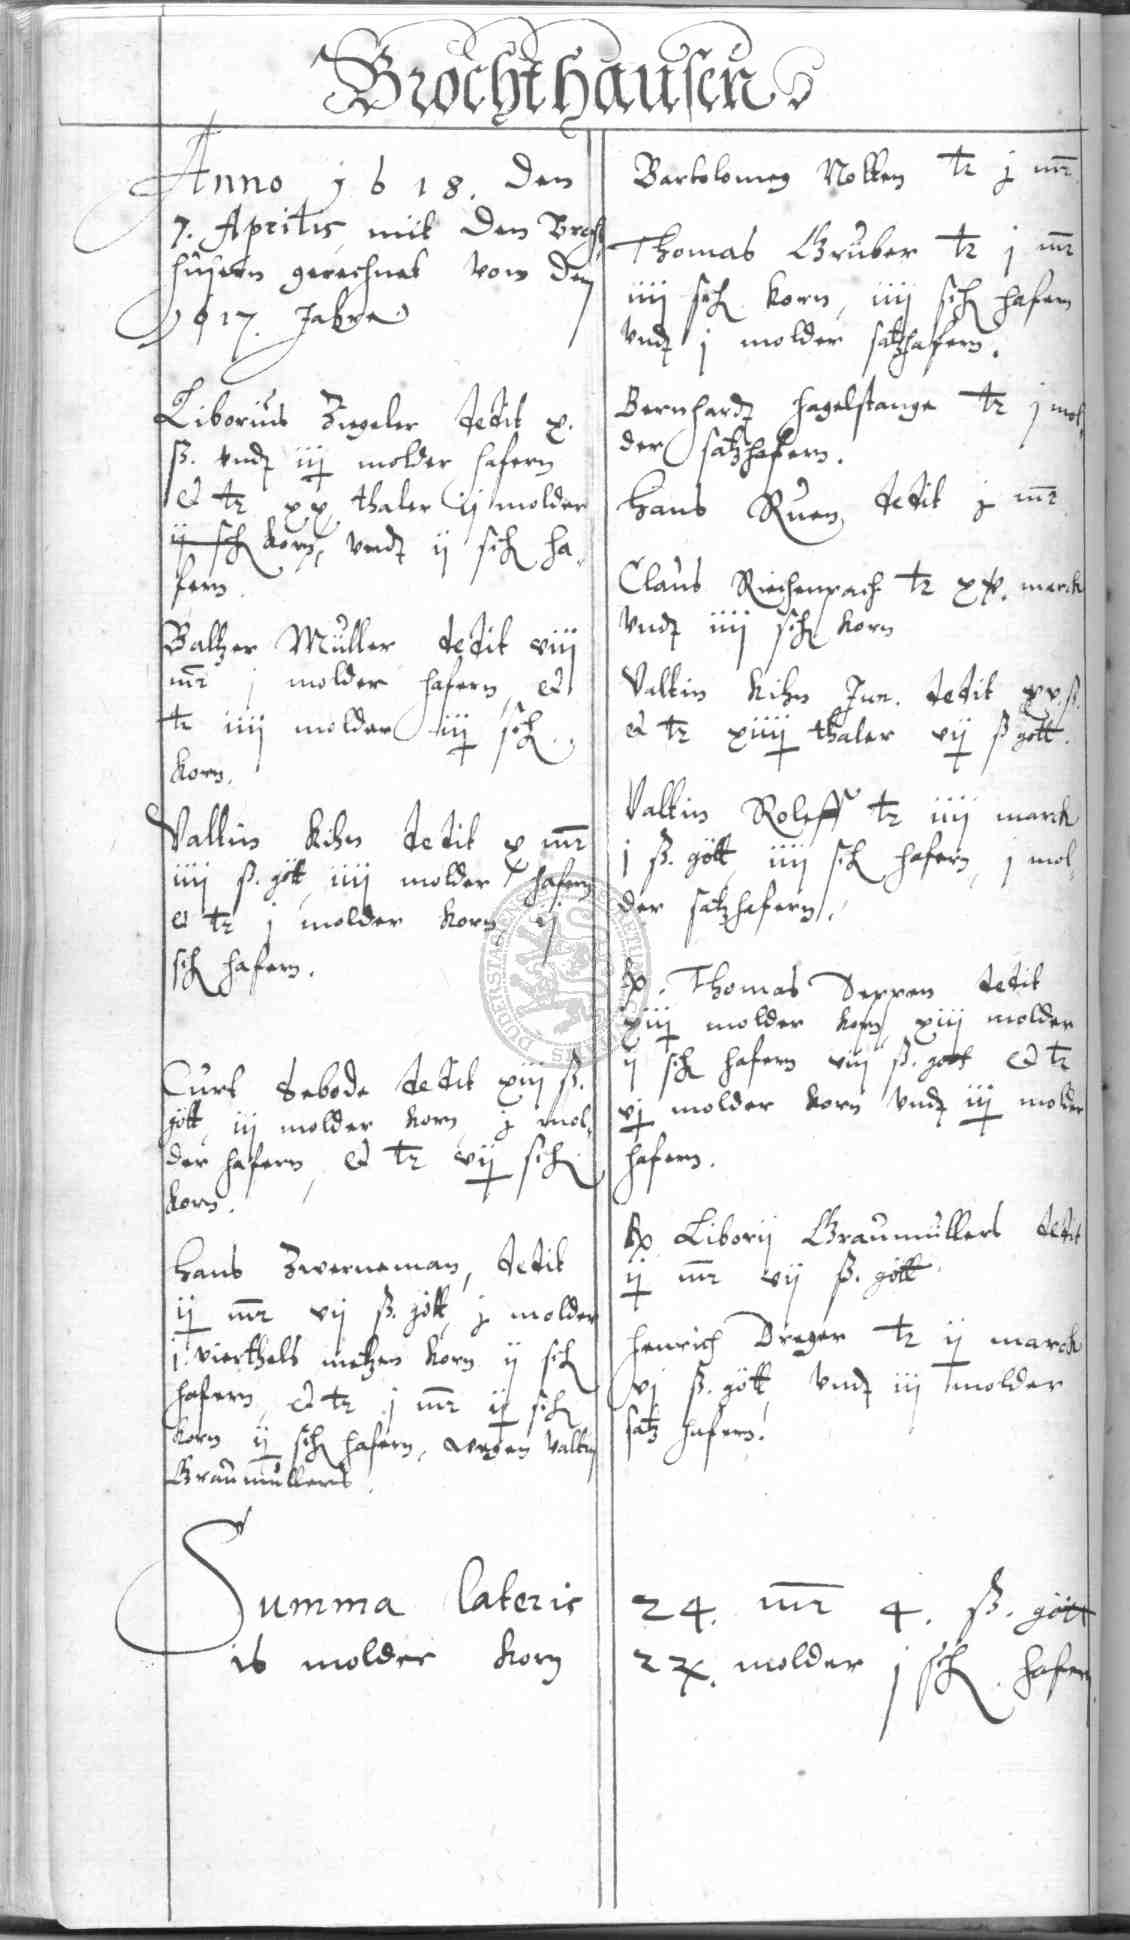 Brochthausen
Anno 1618. den
7. Aprilis, mit den Broch,
husern gerechnet vom den
1617. Jahre
Liborius Ziegeler dedit x.
ß. vndt iij molder hafern
et tr xx thaler ij molder
ij sch korn, vndt ij sch ha,
fern.
Baltzer Müller dedit viij
mr j molder hafern, et
tr iiij molder iij sch
korn.
Valtin Kihn dedit x mr
iiij ß. gött, iiij molder hafern
et tr j molder korn ij
sch hafern.
Curt Sebode dedit xiij ß.
gött, iij molder korn, j mol,
der hafern, et tr vij sch
korn.
Hans Zwerneman, dedit
ij mr vij ß. gött, j molder
j vierthels metzen korn ij sch
hafern, et tr j mr ij sch
korn ij sch hafern, wegen Valtin
Graumüllers.
Bartolomeg Nolten tr j mr.
Thomas Gruber tr j mr
iiij sch korn, iiij sch hafern
vndt j molder satzhafern.
Bernhardt Hagelstange tr j mol,
der satzhafern.
Hans Ruen, dedit j mr.
Claus Riechenpach tr xx. marck
vndt iiij sch korn
Valtin Kihn Jun. dedit xv. ß.
et tr xiiij thaler vij ß gött.
Valtin Roleff tr iiij marck
j ß. gött, iiij sch hafern, j mol,
der satzhafern.
Thomas Deppen dedit
xiij molder korn, xiij molder
ij sch hafern viij ß. gött et tr
vj molder korn vndt iij molder
hafern.
Liborij Graumüllers dedit
ij mr vij ß. gött.
Henrich Dreger tr ij marck
vj ß. gött, vndt iij molder
satz hafern.
Summa lateris 24. mr 4. ß. gött
16 molder korn 27. molder j sch. hafern.